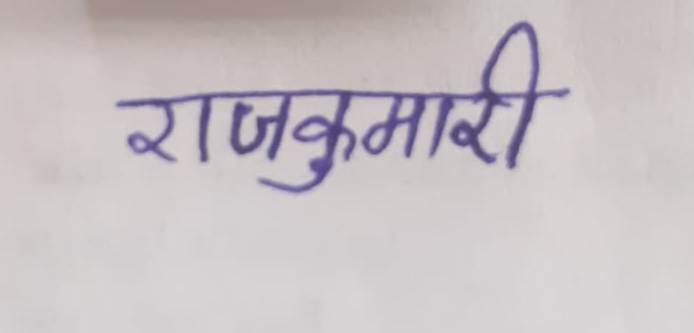 राजकुमारी